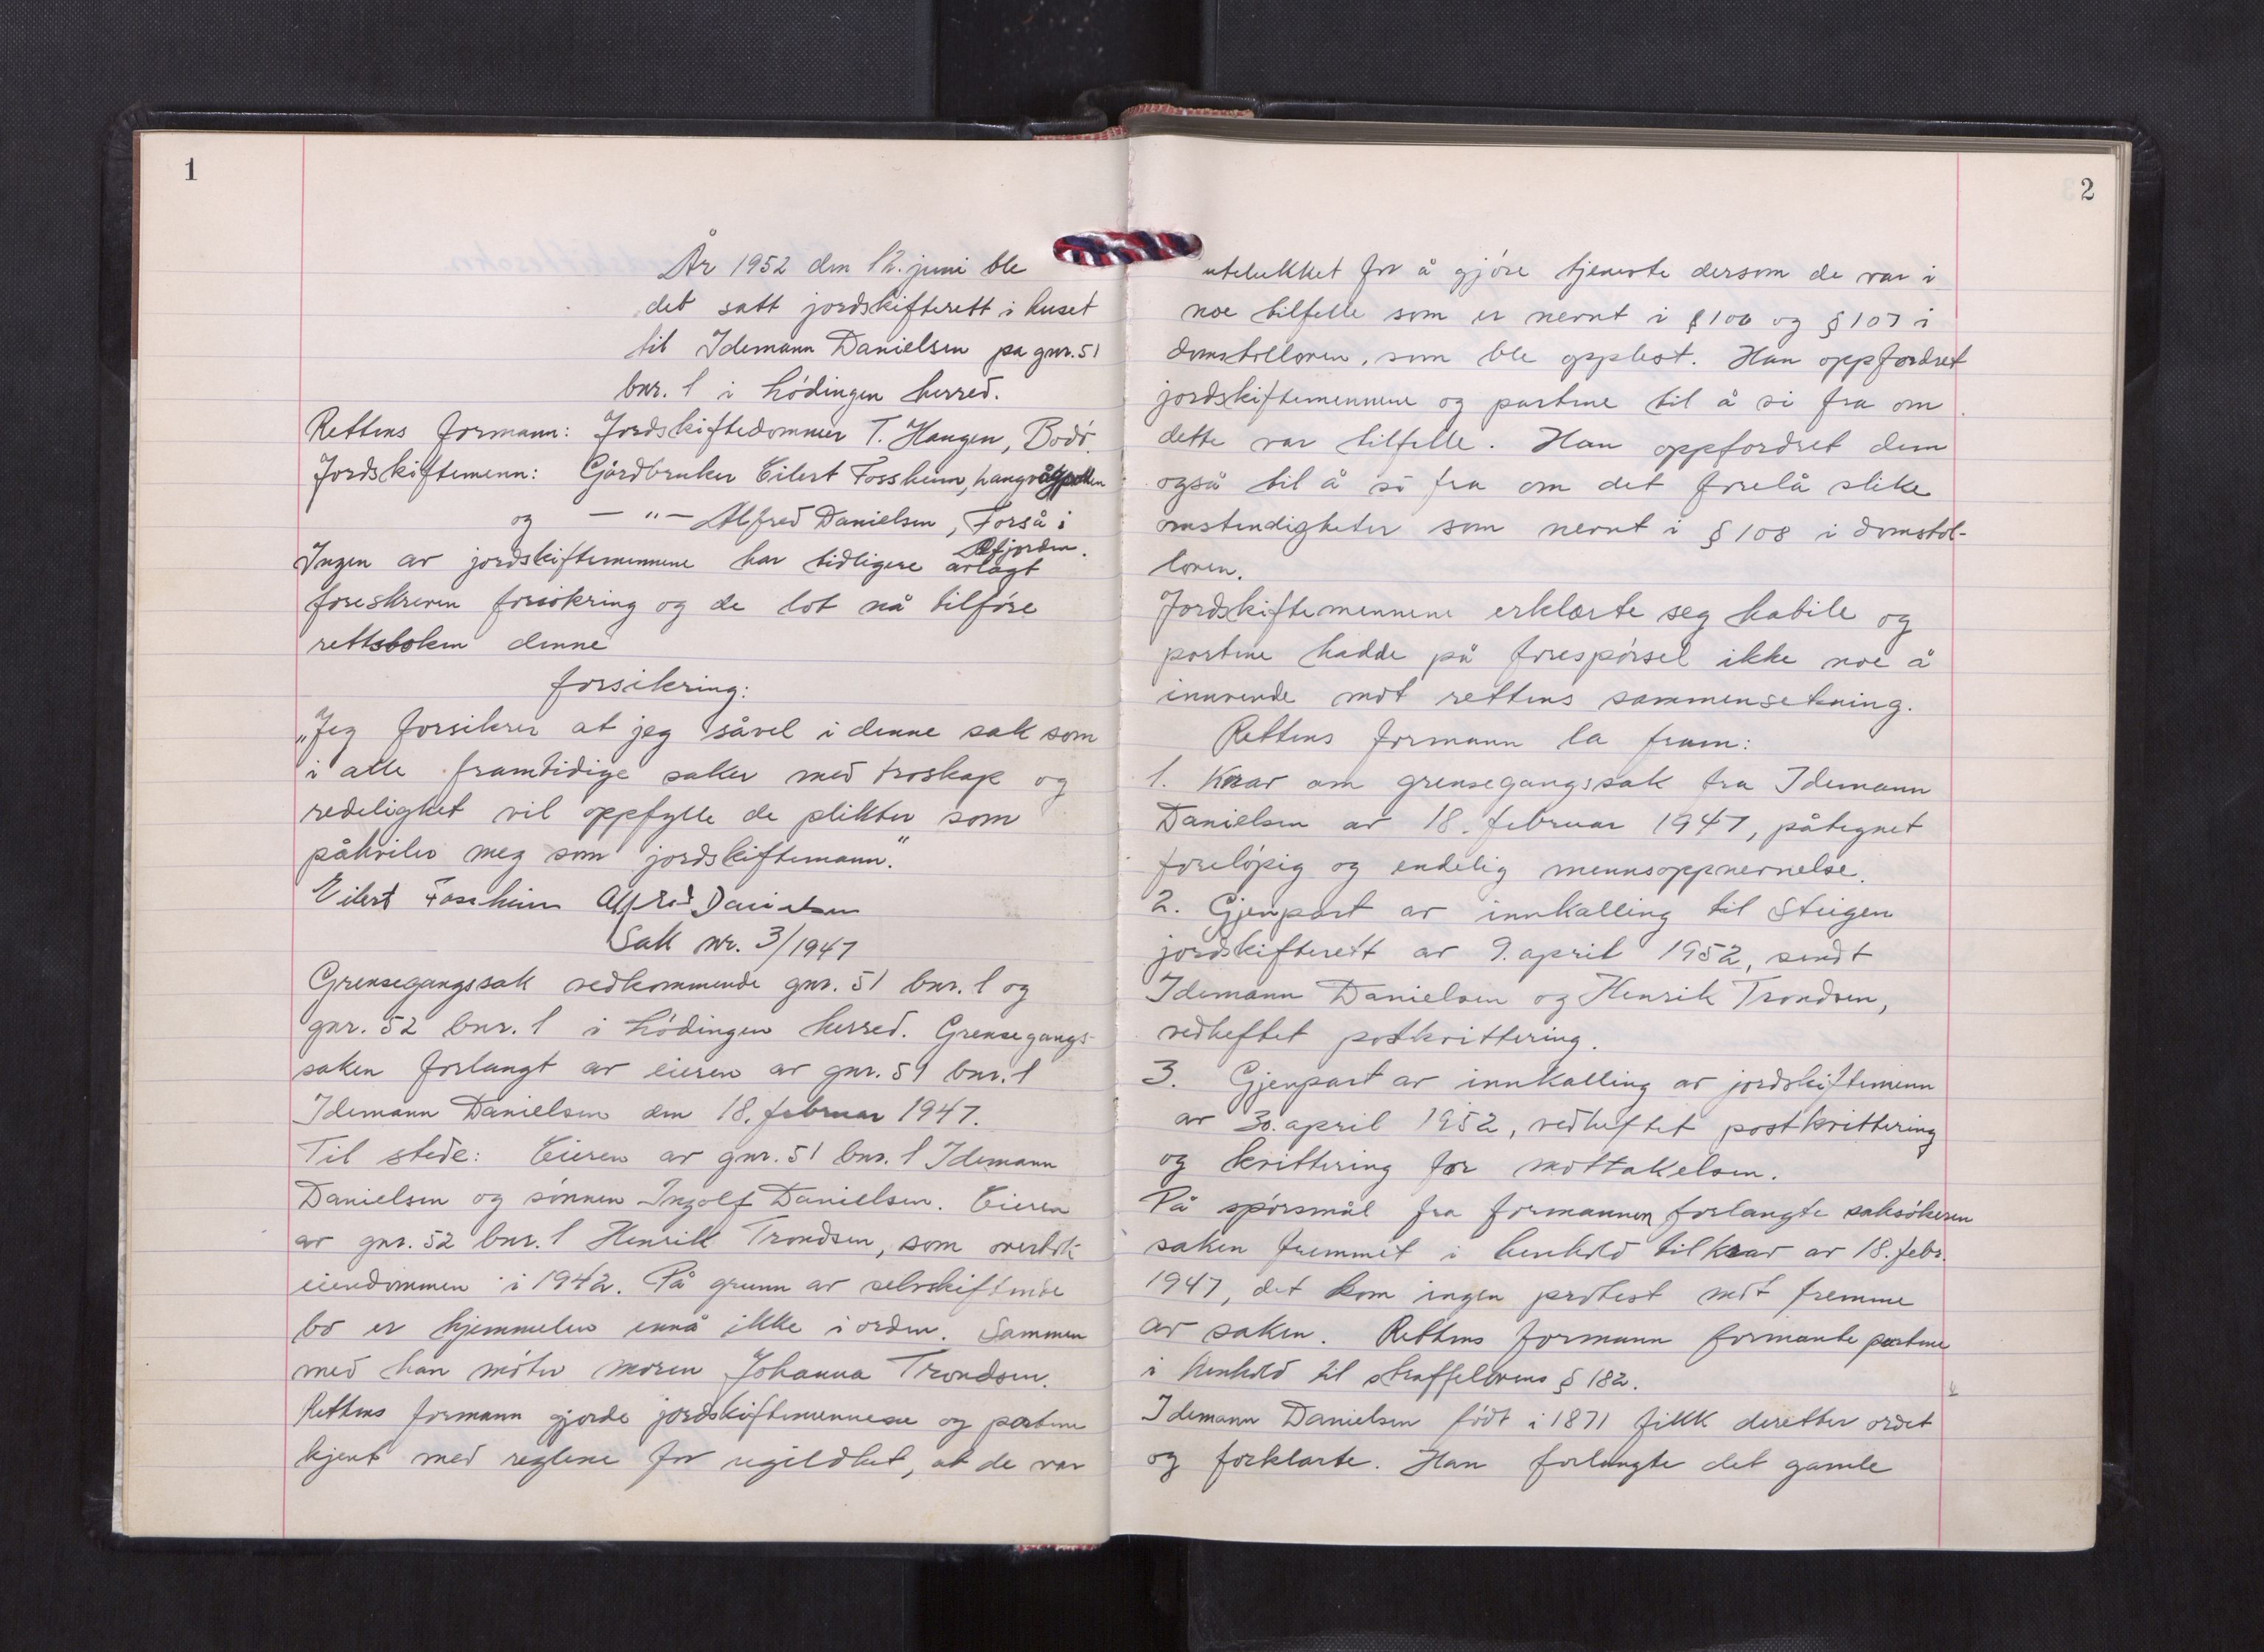 1
År 1952 den 12. juni ble
det satt jordskifterett i huset
til Idemann Danielsen pa gnr. 51
bnr. 1 i Lødingen herred.
Rettens formann: Jordskiftedommer T. Haugen, Bodø.
Jordskiftemenn: Gårdbruker Eilert Fossheim,
og — " — Alfred Danielsen, Forså i
Efjorden.
Ingen av jordskiftemennene har tidligere avlagt
foreskreven forsikring og de lot nå tilføre
rettsboken denne
forsikring:
„Jeg forsikrer at jeg såvel i denne sak som
i alle framtidige saker med troskap og
redelighet vil oppfylle de plikter som
påhviler meg som jordskiftemann."
Eilert Fossheim Alfred Danielsen
Sak nr. 3/1947
Grensegangssak vedkommende gnr. 51 bnr. 1 og
gnr. 52 bnr. 1 i Lødingen herred. Grensegangs-
saken forlangt av eieren av gnr. 51 bnr. 1
Idemann Danielsen den 18. februar 1947.
Til stede: Eieren av gnr. 51 bnr. 1 Idemann
Danielsen og sønnen Ingolf Danielsen. Eieren
av gnr. 52 bnr. 1 Henrik Trondsen, som overtok
eiendommen i 1942. På grunn av selvskiftende
bo er hjemmelen ennå ikke i orden. Sammen
med han møter moren Johanna Trondsen.
Rettens formann gjorde jordskiftemennene og partene
kjent med reglene for ugildhet, at de var
2
utelukket for å gjøre tjeneste dersom de var i
noe tilfelle som er nevnt i § 106 og § 107 i
domstolloven, som ble opplest. Han oppfordret
jordskiftemennene og partene til å si fra om
dette var tilfelle. Han oppfordret dem
også til å si fra om det forelå slike
omstendigheter som nevnt i § 108 i domstol-
loven.
Jordskiftemennene erklærte seg habile og
partene hadde på forespørsel ikke noe å
innvende mot rettens sammensetning.
Rettens formann la fram:
1. Krav om grensegangssak fra Idemann
Danielsen av 18. februar 1947, påtegnet
foreløpig og endelig mennsoppnevnelse.
2. Gjenpart av innkalling til Steigen
jordskifterett av 9. april 1952, sendt
Idemann Danielsen og Henrik Trondsen,
vedheftet postkvittering.
3. Gjenpart av innkalling av jordskiftemenn
av 30. april 1952, vedheftet postkvittering
og kvittering for mottakelsen.
På spørsmål fra formannen forlangte saksøkeren
saken fremmet i henhold til krav av 18. febr.
1947, det kom ingen protest mot fremme
av saken. Rettens formann formante partene
i henhold til straffelovens § 182.
Idemann Danielsen født i 1871 fikk deretter ordet
og forklarte. Han forlangte det gamle